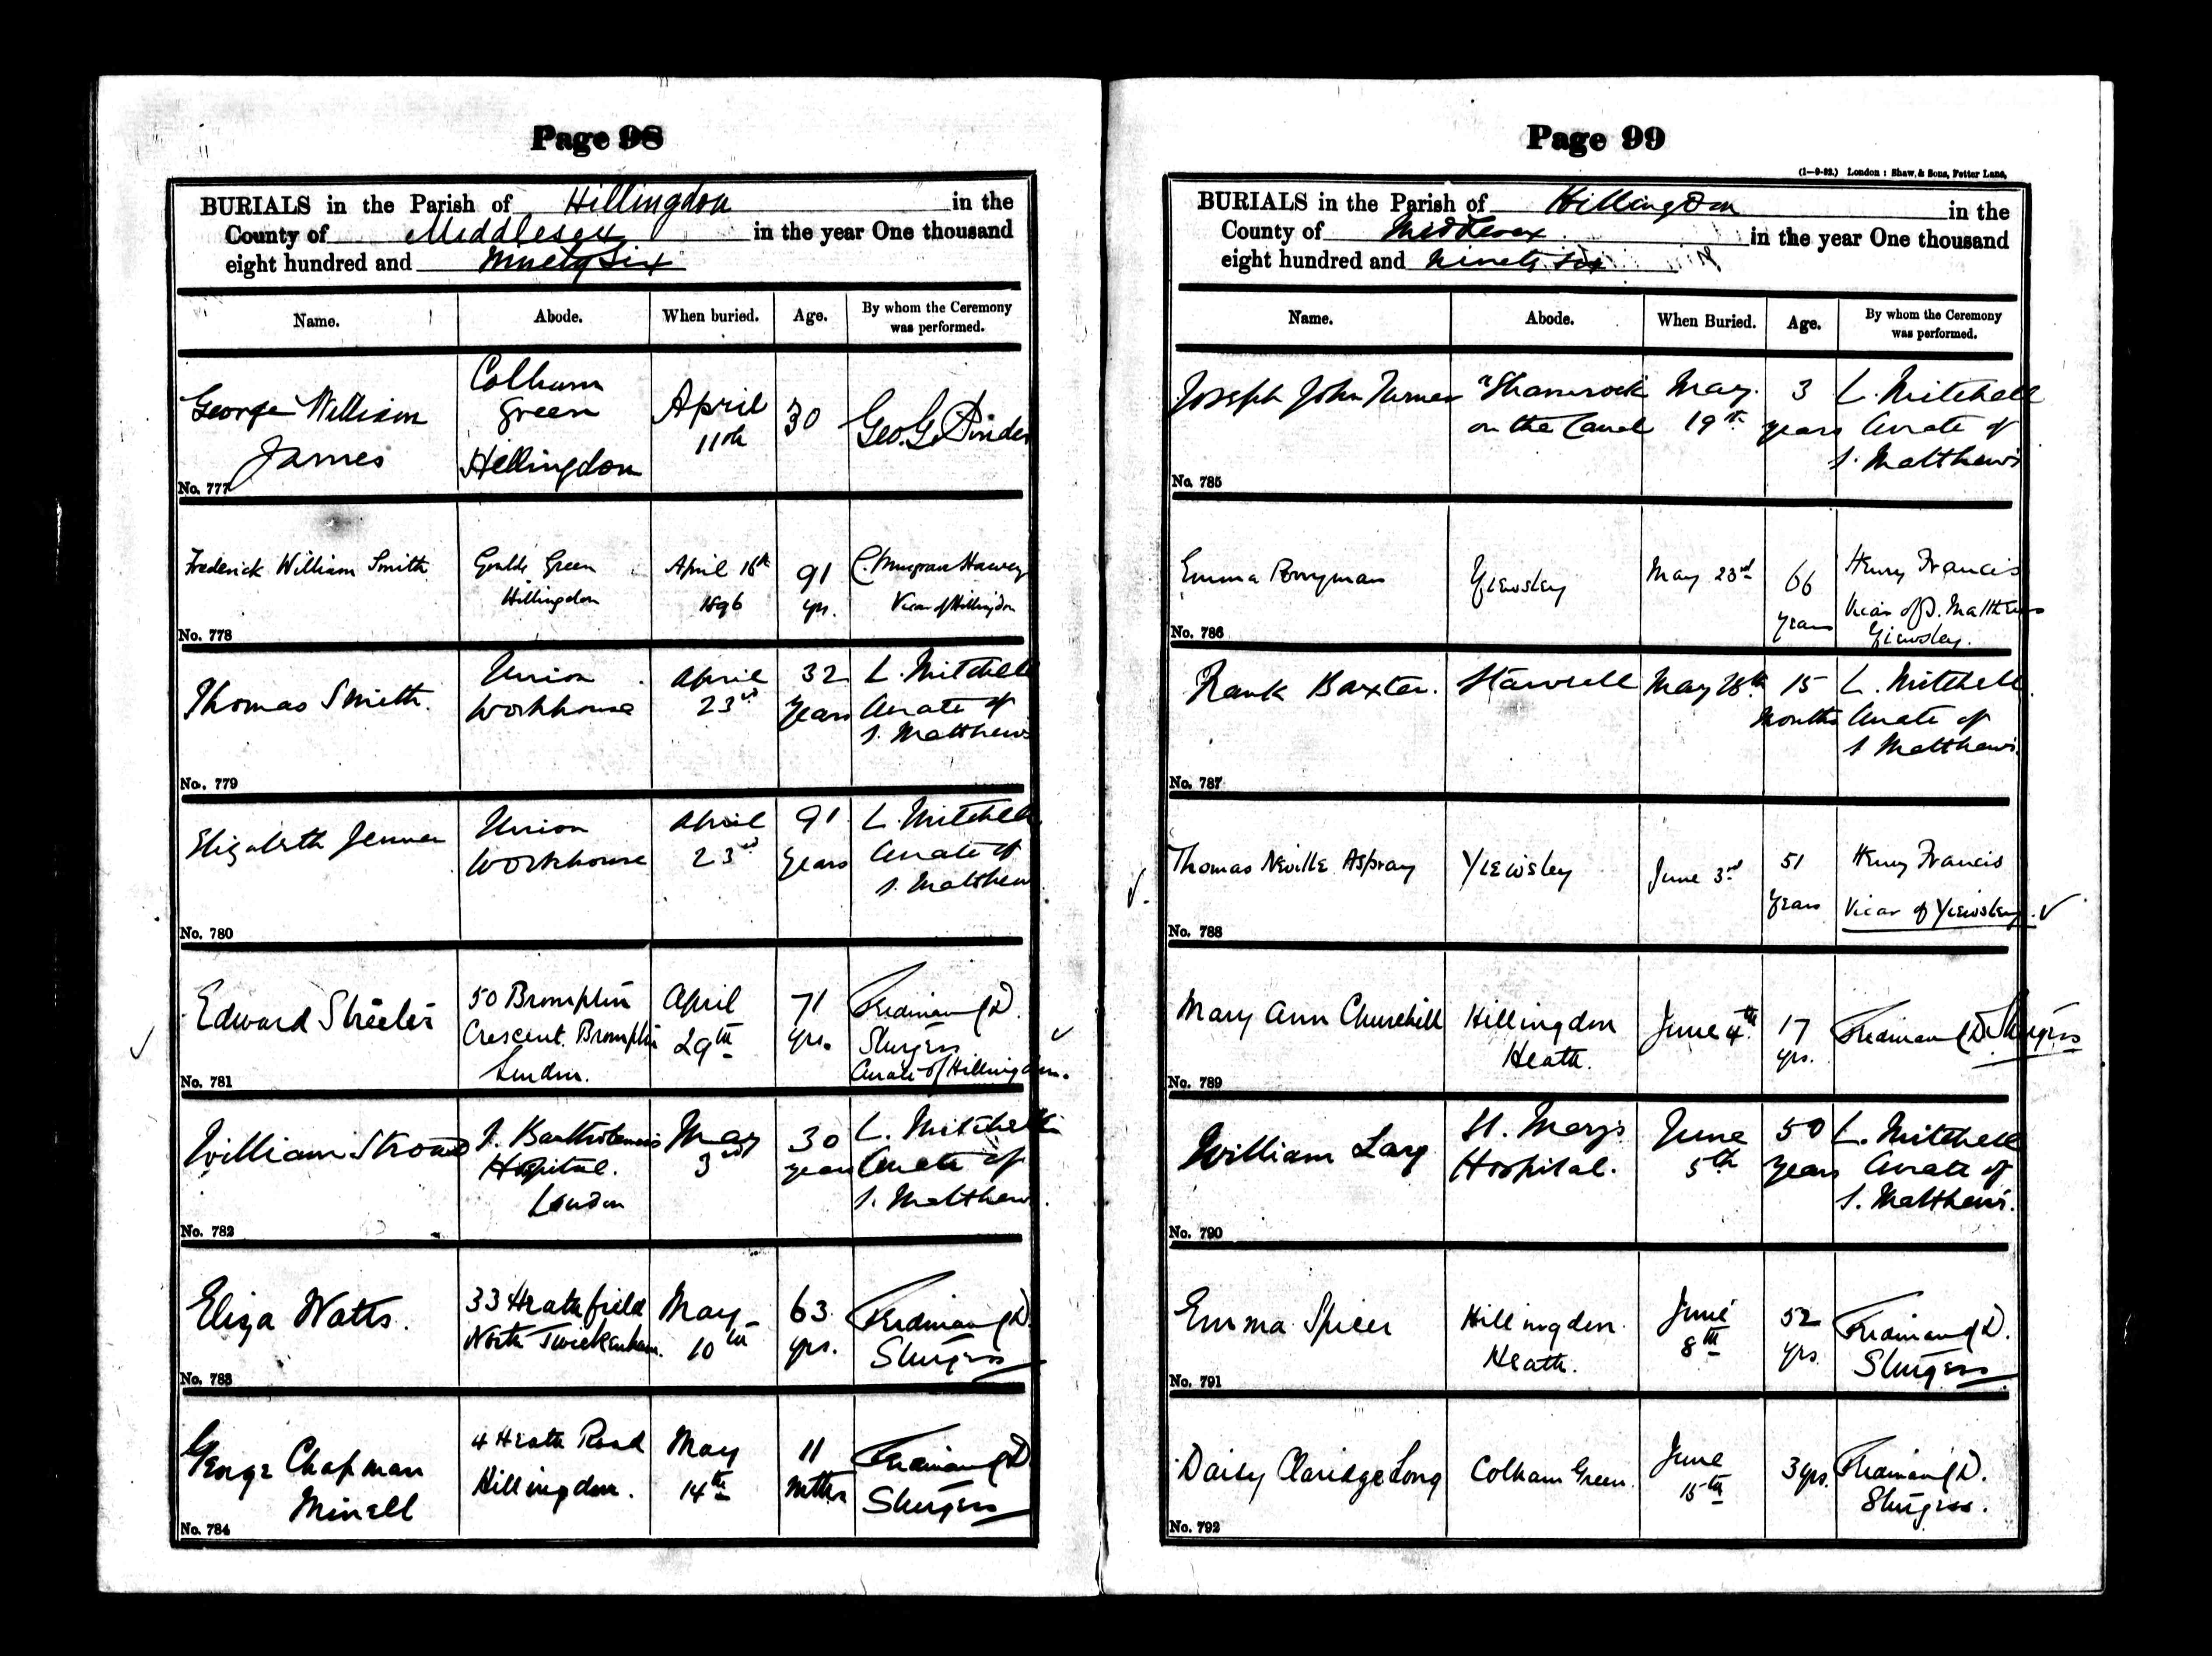 Page 98
BURIALS in the Parish of Hillingdon in the
County of Middlesex in the year One thousand
eight hundred and Ninety Six
Name. Abode. When buried. Age. By whom the Ceremony was performed.
George William
James
Colham
Green
Hillingdon
April
11th
30
Geo. G. Pinder
No. 777
Frederick William Smith
Goulds Green
Hillingdon
April 16th
1896
91
yrs.
Vicar of Hillingdon
No. 778
Thomas Smith.
Union
Workhouse
April
23rd
32
years
L. Mitchell
Curate of
S. Matthews
No. 779
Elizabeth Jenner
Union
Workhouse
April
23rd
91
years
L. Mitchell
Curate of
S. Matthew
No. 780
Edward Streeter
50 Brompton
Crescent Brompton
London.
April
29th
71
yrs.
Ferdinand D.
Sturgess
Curate of Hillingdon.
No. 781
William Stroud
S. Bartholomews
Hospital.
London
May
3rd
30
years
L. Mitchell
Curate of
S. Matthews.
No. 782
Eliza Watts.
33 Heathfield
North Twickenham.
May
10th
63
yrs.
Ferdinand D.
Sturgess
No. 783
George Chapman
Minell
4 Heath Road
Hillingdon.
May
14th
11
mths
Ferdinand D.
Sturgess
No. 784
Page 99
(1—9-82.) London: Shaw & Sons, Fetter Lane,
BURIALS in the Parish of Hillingdon in the
County of Middlesex in the year One thousand
eight hundred and Ninety six
Name. Abode. When Buried. Age. By whom the Ceremony was performed.
Joseph John Turner
"Shamrock
on the Canal
May
19th
3
years
L. Mitchell
Curate of
S. Matthew's
No. 785
Emma Perryman
Yiewsley
May 23rd
66
years
Henry Francis
Vicar of S. Matthews
Yiewsley.
No. 786
Frank Baxter.
May 28th
15
months
L. Mitchell
Curate of
S Matthews.
No. 787
Thomas Neville Aspray
Yiewsley
June 3rd
51
years
Henry Francis
Vicar of Yiewsley.
No. 788
Mary Ann Churchill
Hillingdon
Heath.
June 4th
17
yrs.
Ferdinand D. Sturgess
No. 789
William Lacy
St. Mary's
Hospital.
June
5th
50
years
L. Mitchell
Curate of
S. Matthews.
No. 790
Emma Spicer
Hillingdon
Heath.
June
8th
52
yrs
Ferdinand D.
Sturgess
No. 791
Daisy Claridge Long
Colham Green.
June
15th
3 yrs.
Ferdinand D.
Sturgess.
No. 792